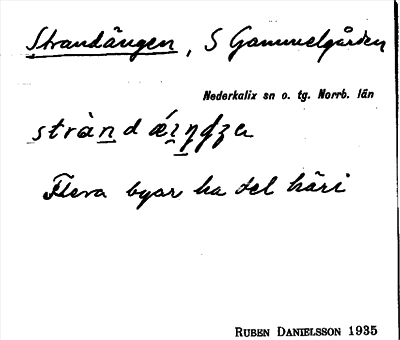 Strandängen, S Gammelgården
Nederkalix sn o. tg. Norrb. län
Flera byar ha del häri
RUBEN DANIELSSON 1935